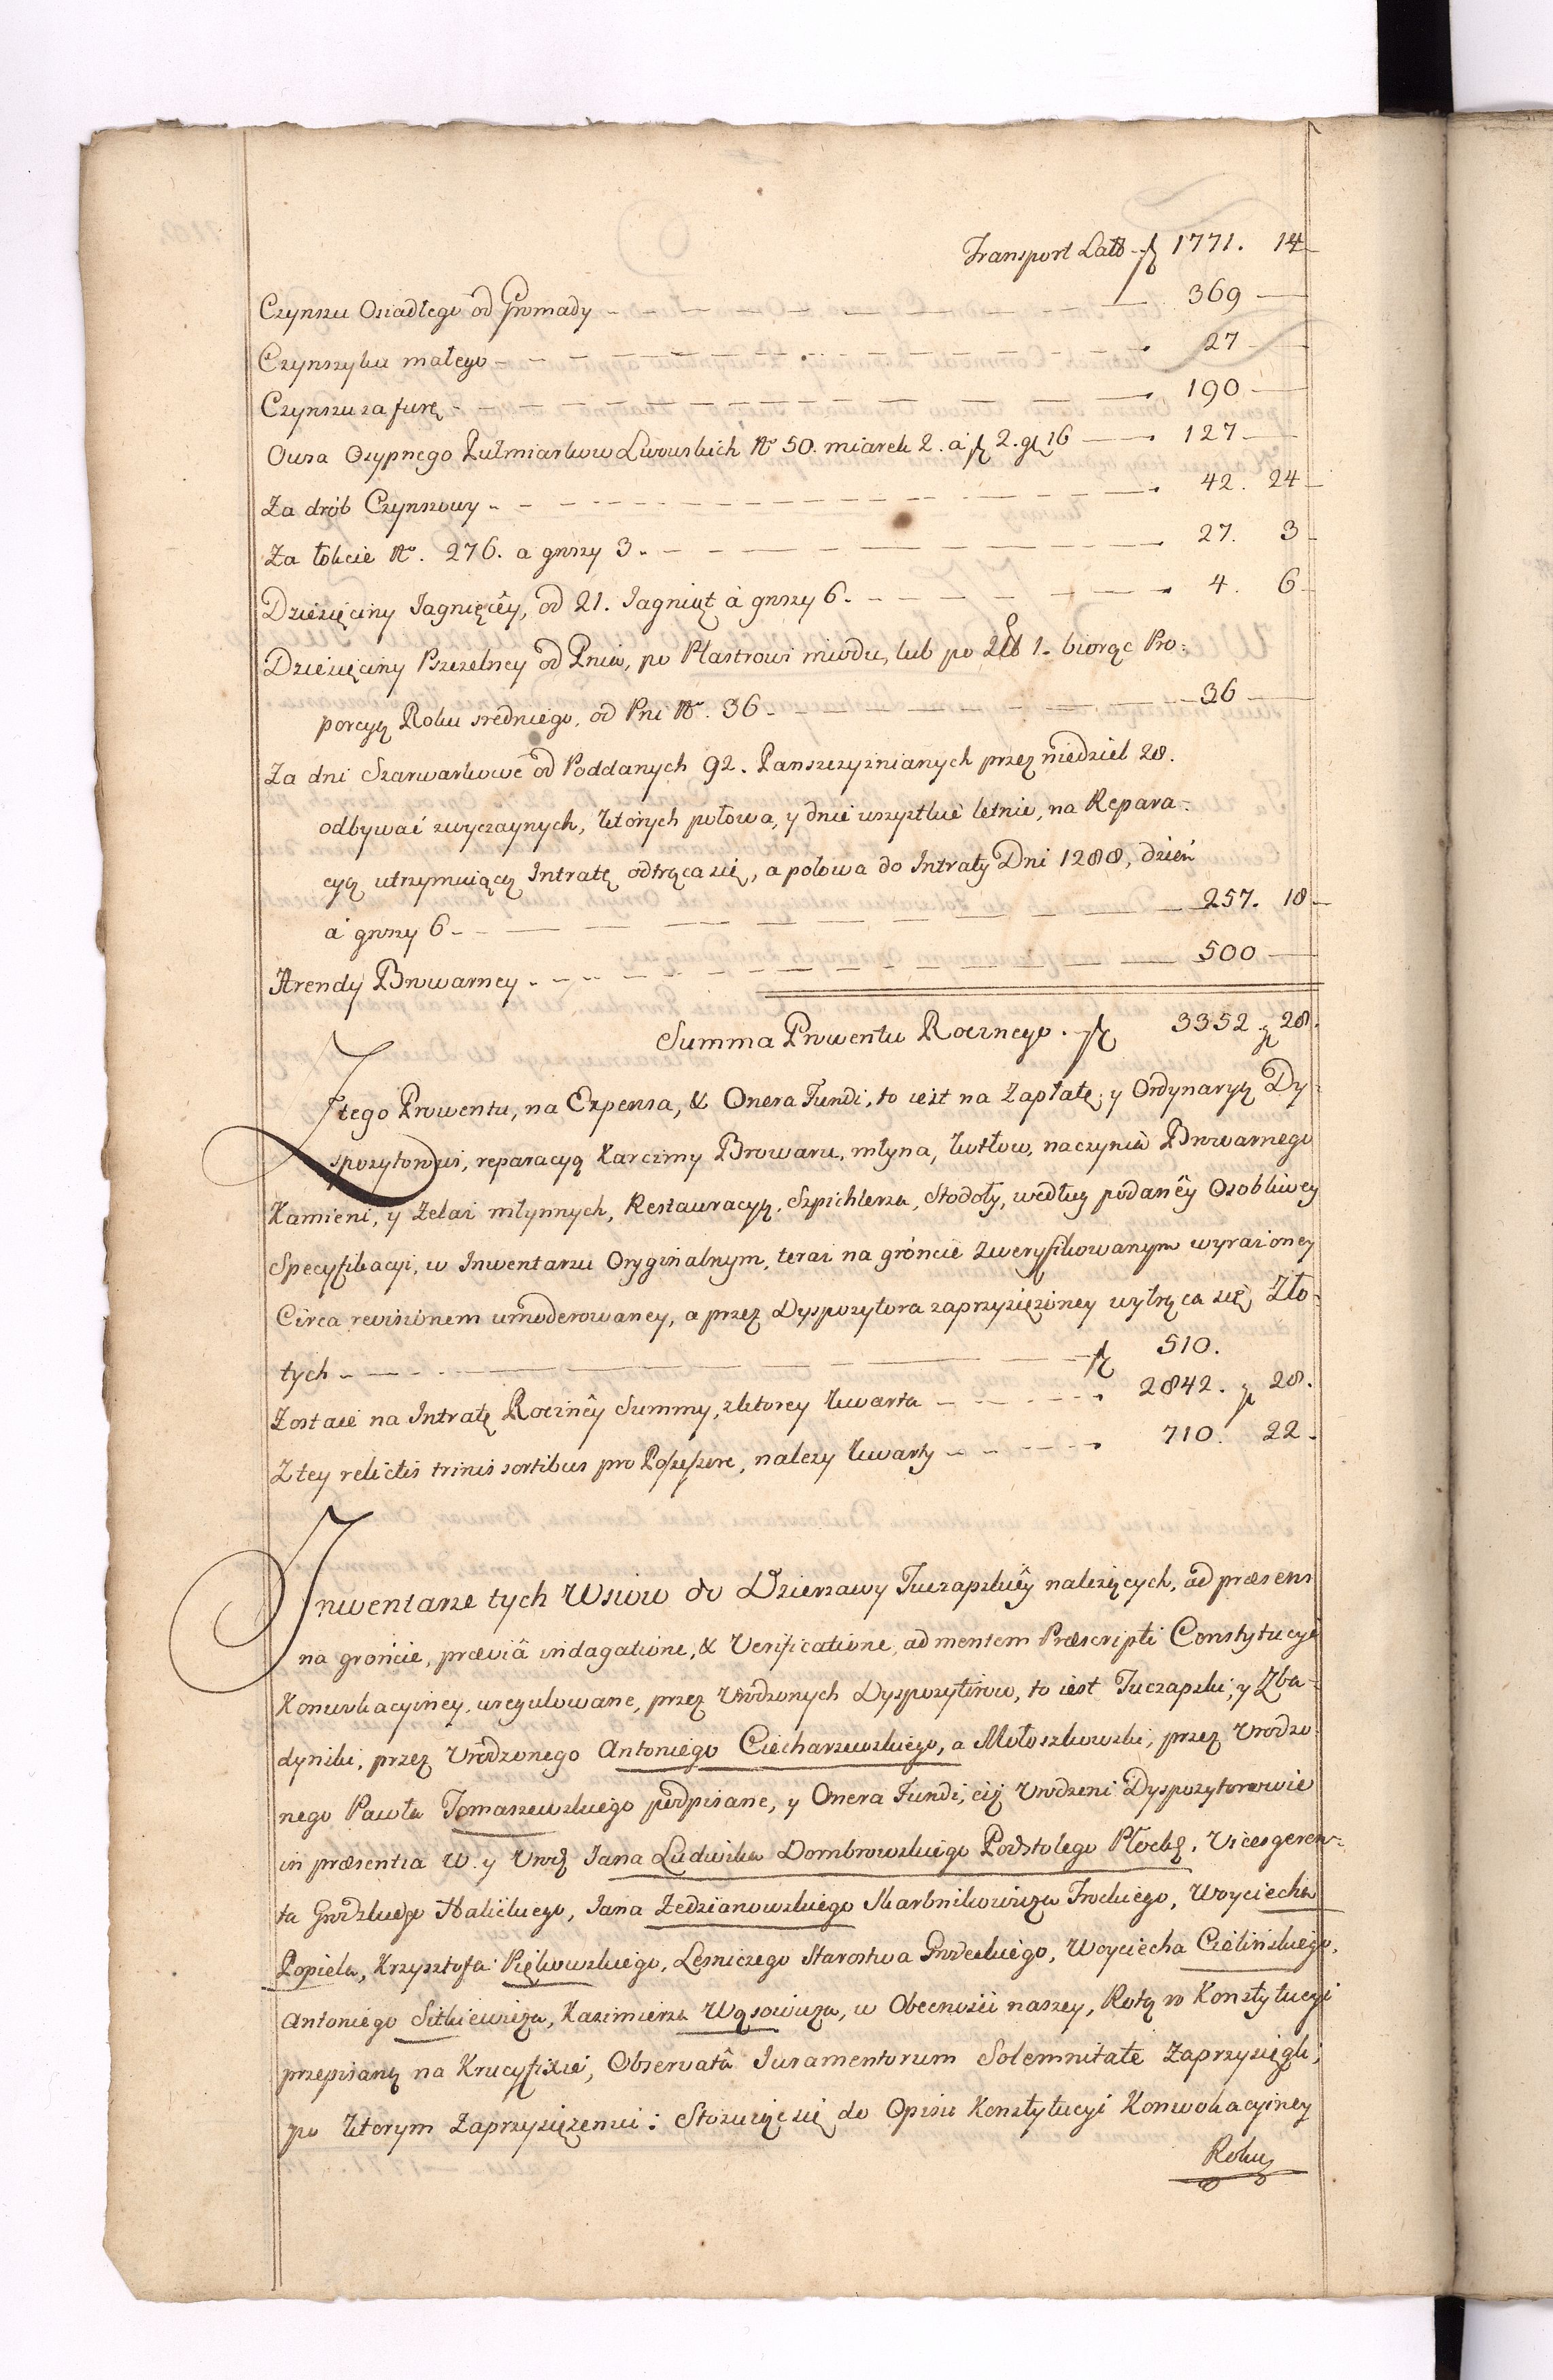 Transport Latis fl 1771. 14
Czynszu Osiadłego od Gromady 369
Czynszyku małego 27
Czynszu za furę 190
Owsa Osypnego Pułmiarkow Lwowskich No 50. miarek 2. à fl 2. gr 16 127
Za drób Czynszowy 42. 24
Za łokcie No. 276. a groszy 3. 27. 3
Dziesięciny Jagnięcey, od 21. Jagniąt à groszy 6. 4. 6
Dziesięciny Pszczelney od Pnia, po Plastrowi miodu, lub po 1. biorąc Pro-
porcyą Roku sredniego, od Pni No. 36 36
Za dni Szarwarkowe od Poddanych 92. Panszczyznianych przez niedziel 28.
odbywać zwyczaynych, ktorych połowa, y dnie wszystkie letnie, na Repara-
cyą utrzymuiącą Intratę odtrąca się, a polowa do Intraty Dni 1288, dzień
à groszy 6 257. 18
Arendy Browarney 500
Summa Prowentu Rocznego. fl 3352 gr 28.
Z tego Prowentu, na Expensa, & Onera Fundi, to iest na Zapłatę, y Ordynaryą Dy-
spozytorowi, reparacyą Karczmy Browaru, młyna, kotłow, naczynia Browarnego
Kamieni, y Zelaz młynnych, Restauracyą, Szpichlerza, Stodoły, według podanêy Osobliwey
Specyfikacyi, w Inwentarzu Oryginalnym, teraz na gróncie zweryfikowanym wyrażoney
Circa revisionem umoderowaney, a przez Dyspozytora zaprzysiężoney wytrąca się Zło-
tych fl 510.
Zostaie na Intratę Rocznêy Summy, z ktorey kwarta 2842. gr 28.
Z tey relictis trinis sortibus pro Possessore, nalezy kwarty 710. 22.
Inwentarze tych Wsiow do Dzierzawy Tuczapskiêy nalezących, ad præsens
na gróncie, præviâ indagatione, & Verificatione, ad mentem Præscripti Constytucyi
Konwokacyiney, uregulowane, przez Urodzonych Dyspozytorow, to iest Tuczapski, y Zba-
dyniki, przez Urodzonego Antoniego Ciecharzewskiego, a Mołoszkowski, przez Urodzo-
nego Pawła Tomaszewskiego podpisane, y Onera Fundi, ciż Urodzeni Dyspozytorowie
in præsentia W. y Urodz Jana Ludwika Dombrowskiego Podstolego Płockg. Vicesgeren-
ta Grodzkiego Halickiego, Jana Zedzianowskiego Skarbnikowicza Trockiego, Woyciecha
Popiela, Krzysztofa Piękowskiego, Lesniczego Starostwa Grodeckiego, Woyciecha Cielińskiego,
Antoniego Sitkiewicza, Kazimierza Wąsowicza, w Obecnosci naszey, Rotą w Konstytucyi
przepisaną na Krucyfixie, Observatâ Juramentorum Solemnitate Zaprzysięgli,
po ktorym Zaprzysięzeniu: Stosuiąc się do Opisu Konstytucyi Konwokacyiney
Roku